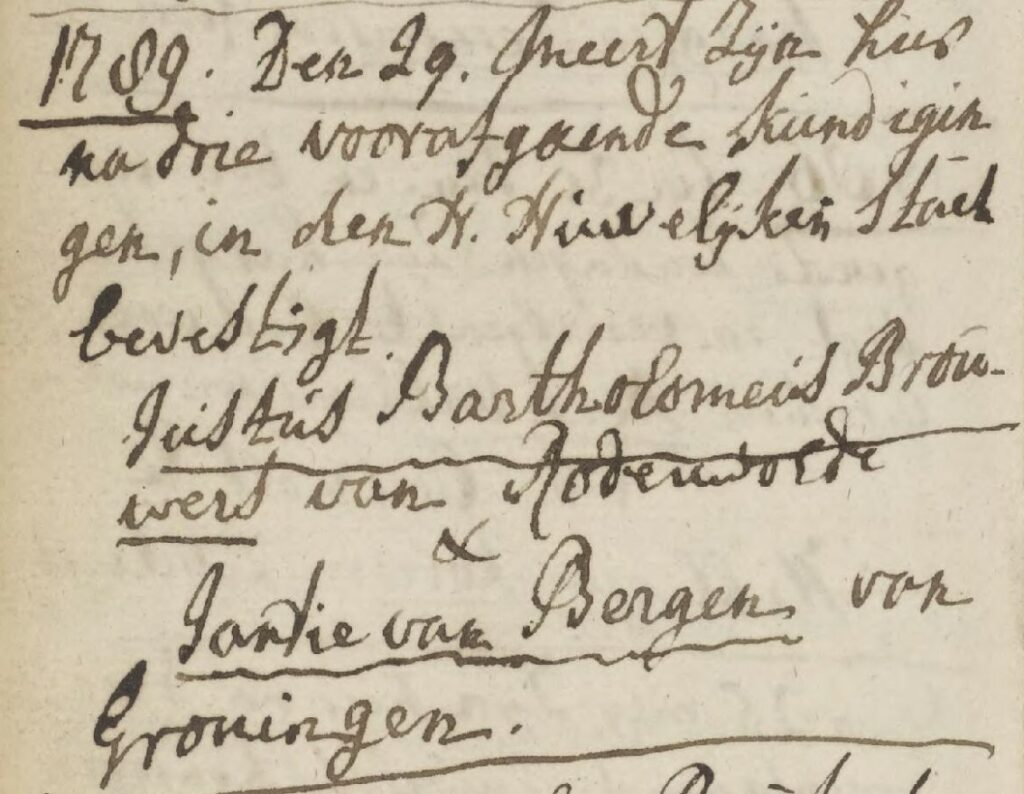 1789. Den 29. Meert zijn hier
na drie voorafgaende kundigin
gen, in den H. Huwelijken staet
bevestigt.
Justus Bartholomeus Brou-
wers van Rodenwolde
&
Jantie van Bergen van
Groningen.